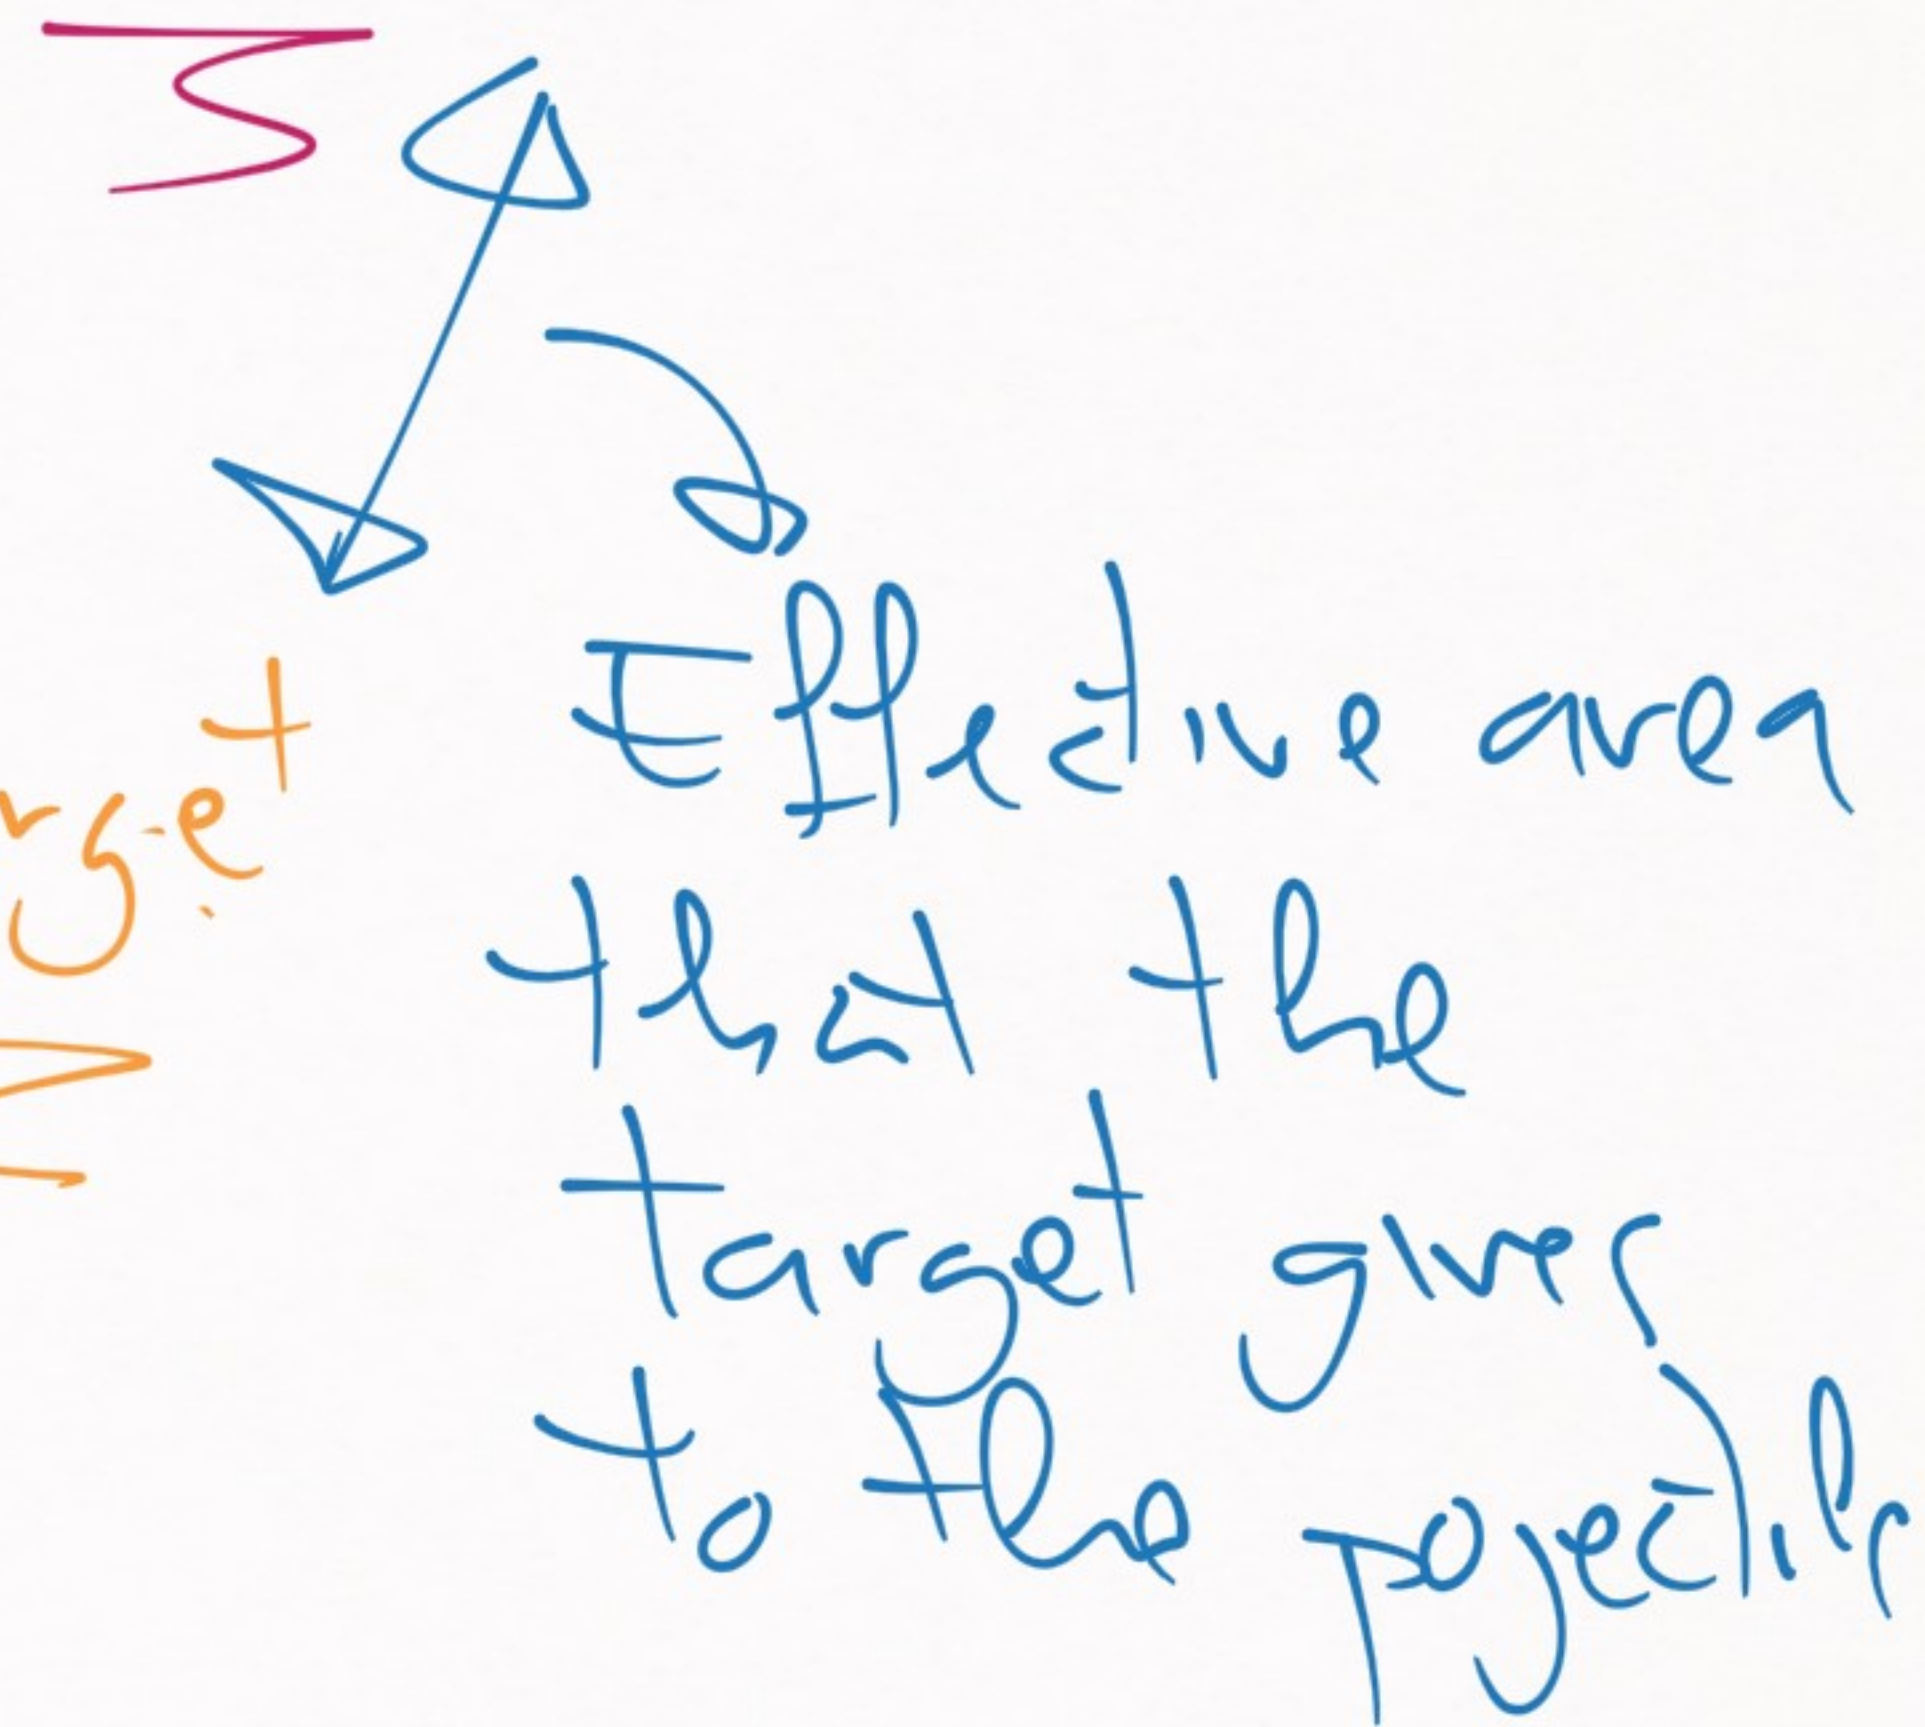 rget
Effective area
that the
target gives
to the pojectile